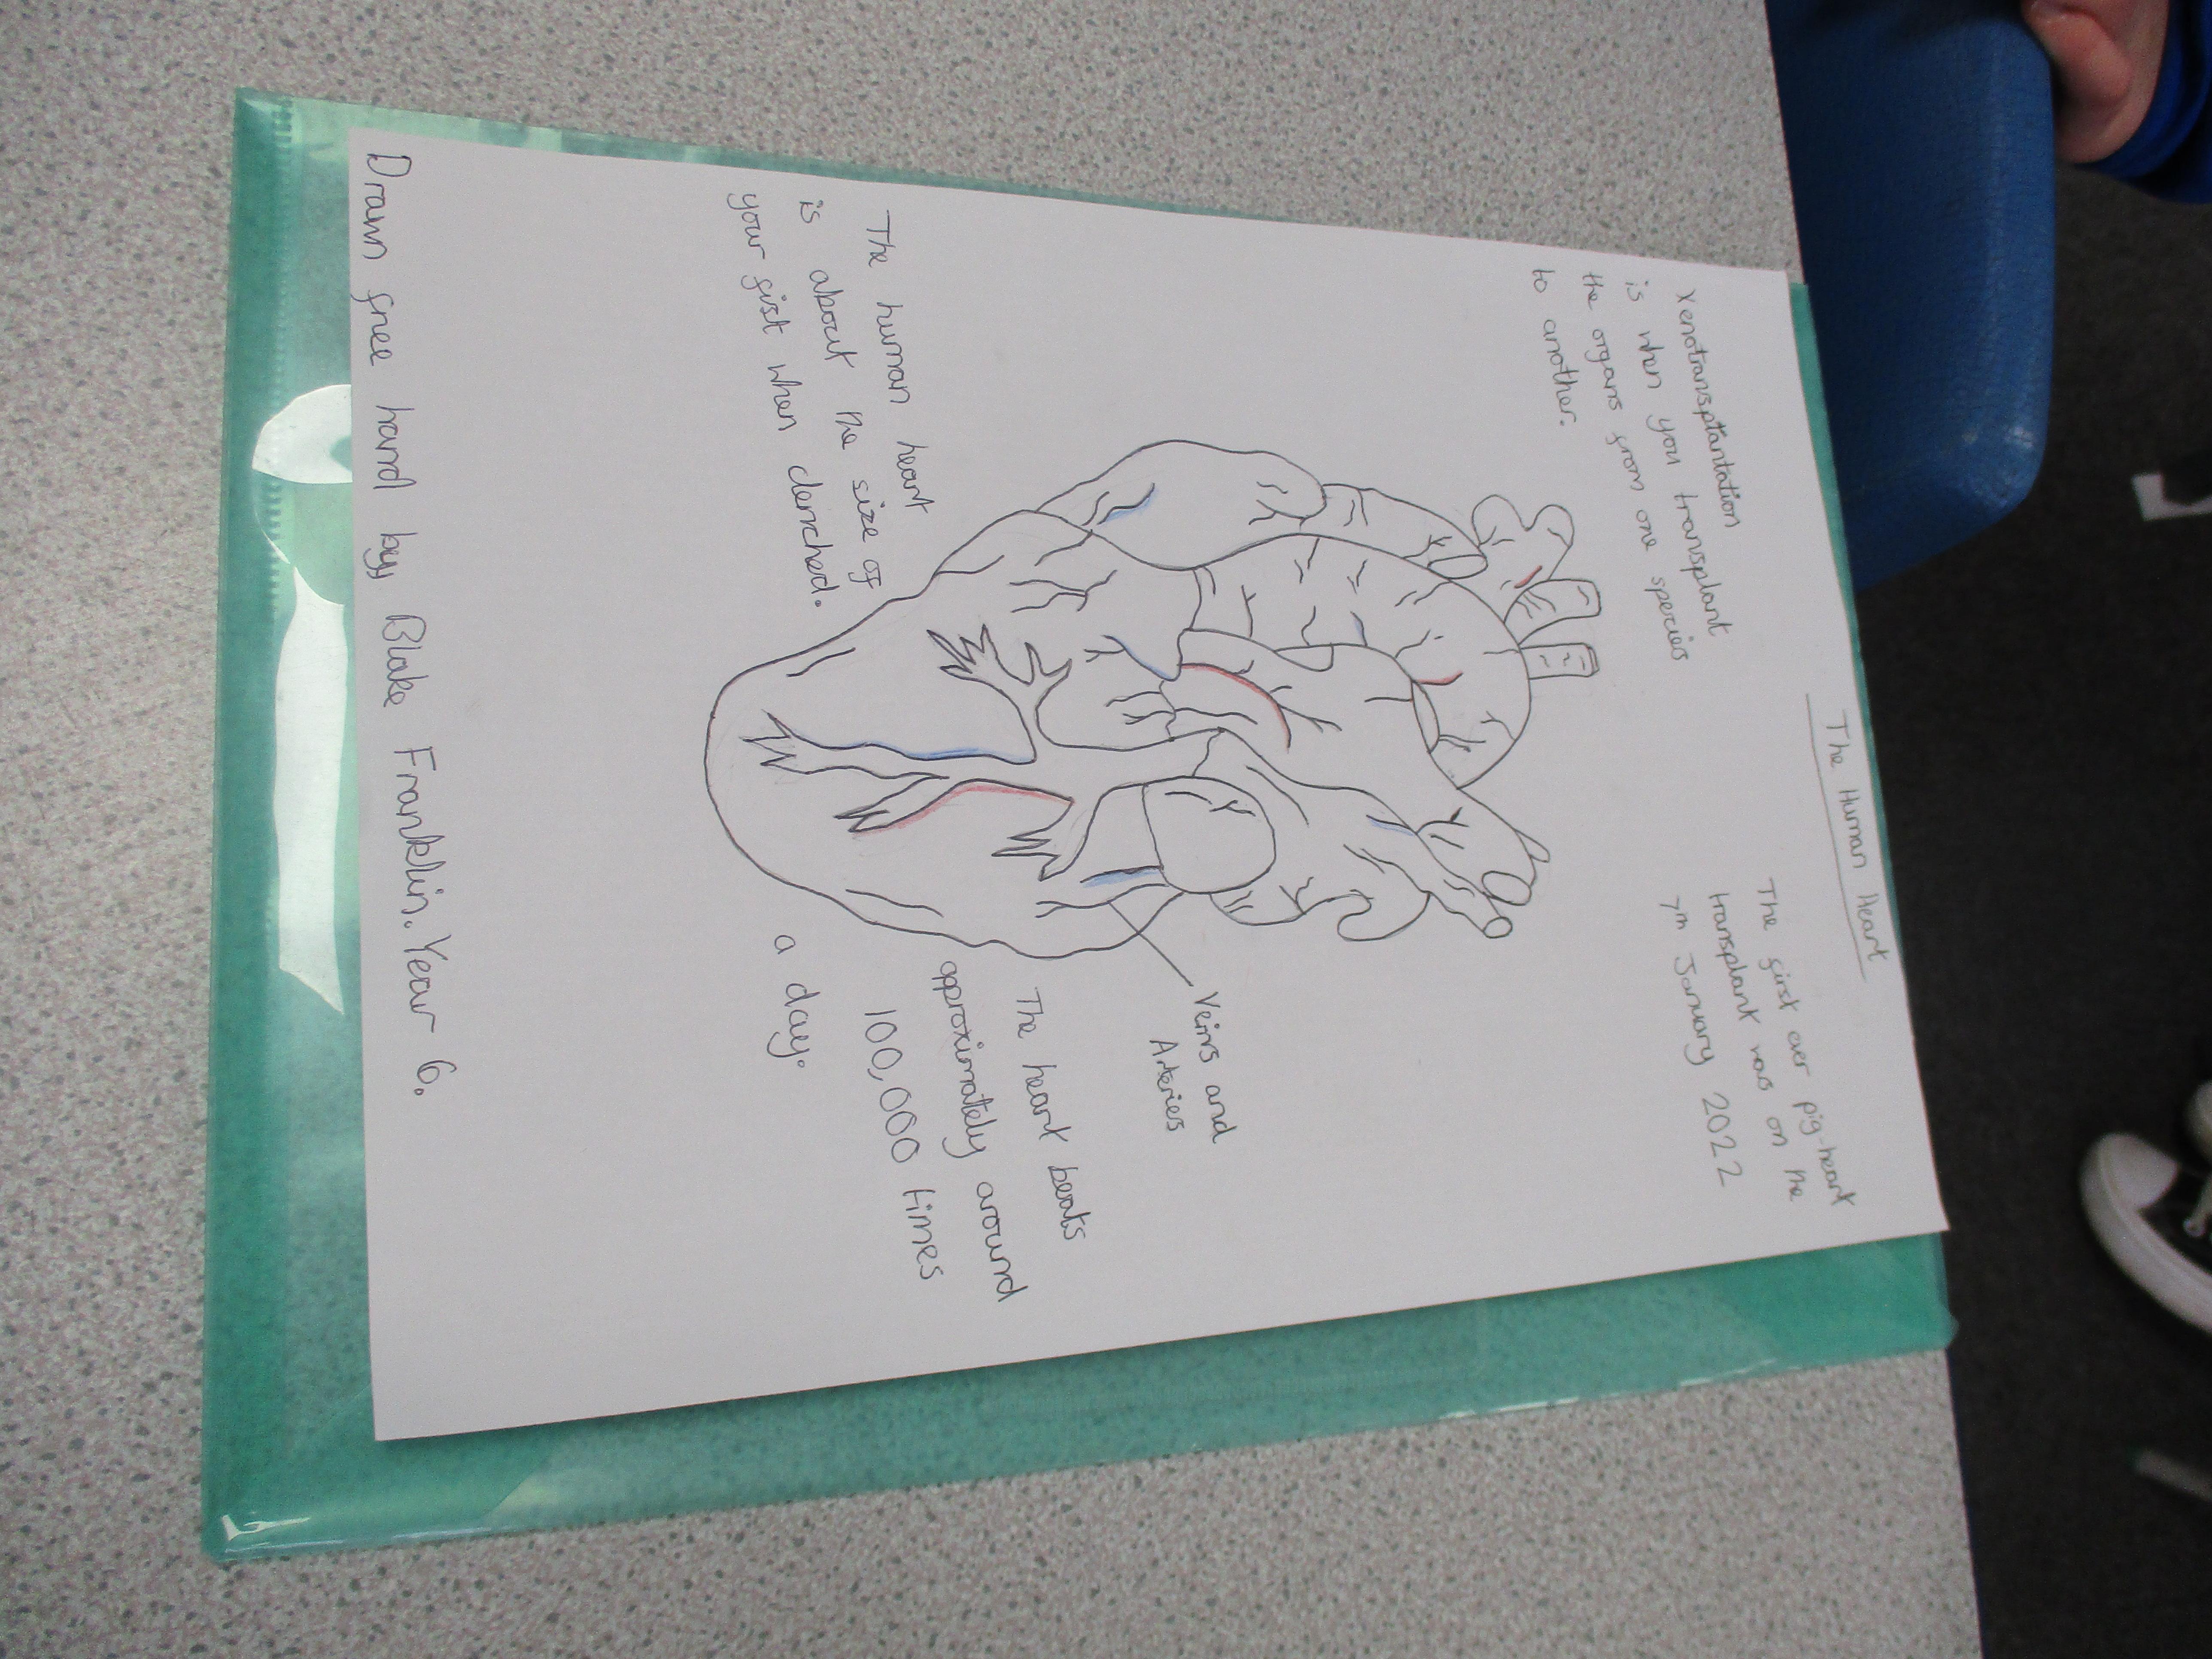 The Human Heart
Xenotransplantation
is when you transplant
the organs from one species
to another.
The first ever pig-heart
transplant was on the
7th January 2022
Veins and
Arteries
The human heart
is about the size of
your fist when clenched.
The heart beats
approximately around
100,000 times
a day.
Drawn free hand by Blake Franklin. Year 6.